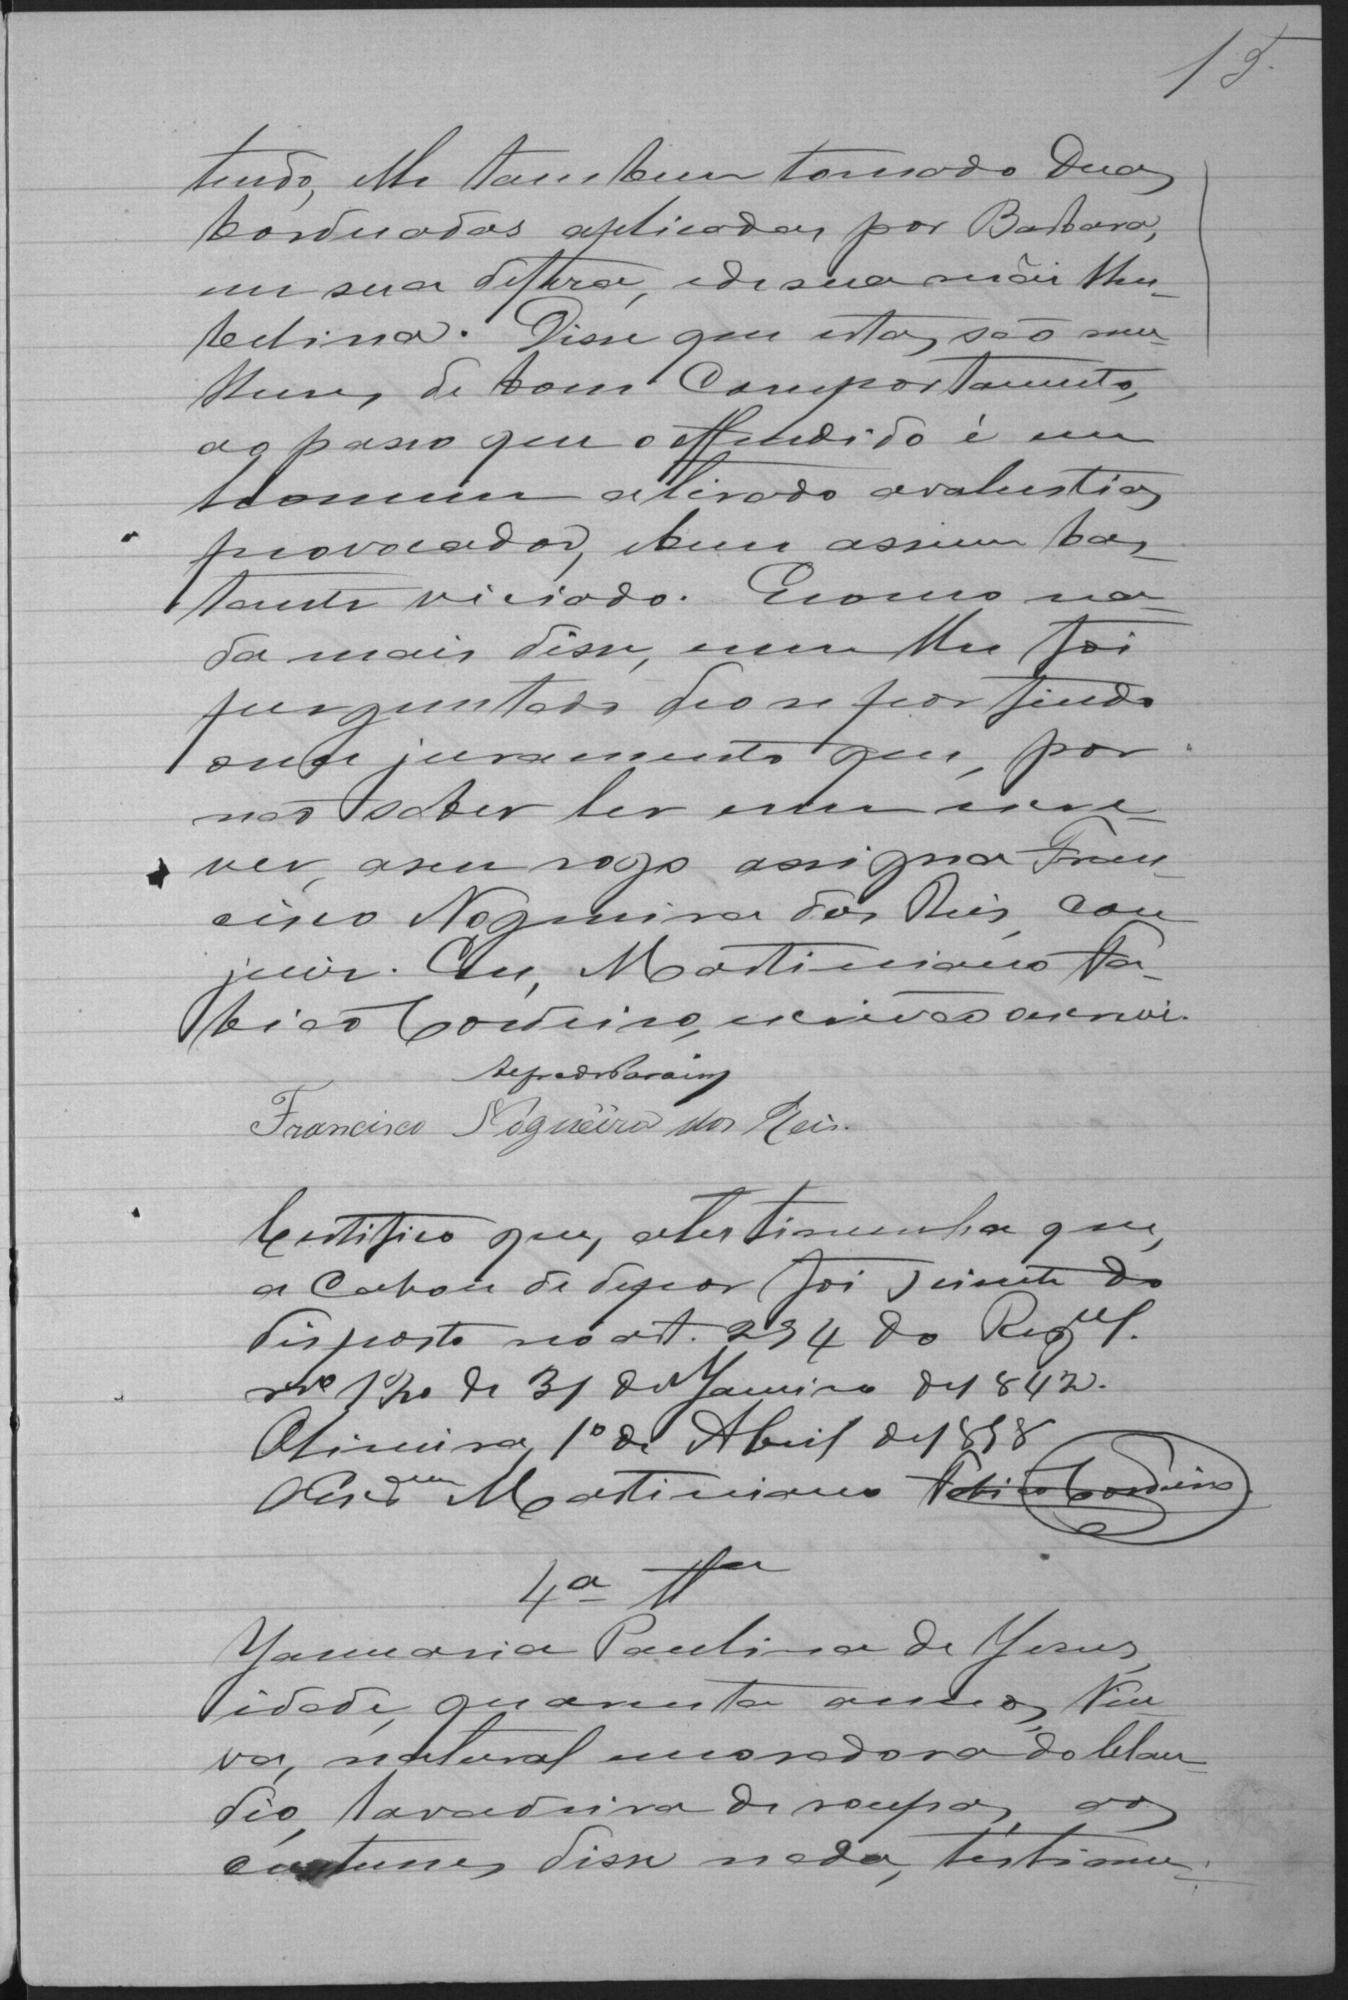 15
tendo, elle tambem tomado duas
borduadas aplicadas por Barbara,
em sua defeza, e de sua mãi Um-
belina. Disse que estas são mu-
lheres de bom comportamento,
ao passo que o offendido é um
homem atirado a valentias
provocador, e bem assim bas-
tante viciado. E como na-
da mais disse, nem lhe foi
perguntado deo se por findo
este juramento que, por
não saber ler nem escre-
ver, a seu rogo assigna Fran-
cisco Nogueira dos Reis, com
juiz. Eu, Martiniano Fa-
bião Cordeiro, escrivão o escrevi.
Francisco Nogueira dos Reis.
Certifico que, a testimunha que,
a cabou de depor foi sciente do
disposto no art. 294 do Regul.
nº 120 de 31 de Janeiro de 1842.
Oliveira, 1º de Abril de 1898
O Escrm Martiniano Fabião Cordeiro
4ª Ttª
Januaria Paulina de Jesus,
idade, quarenta annos, viu-
va, natural e moradora do Clau-
dio, lavadeira de roupas, aos
custumes disse nada, testimu-